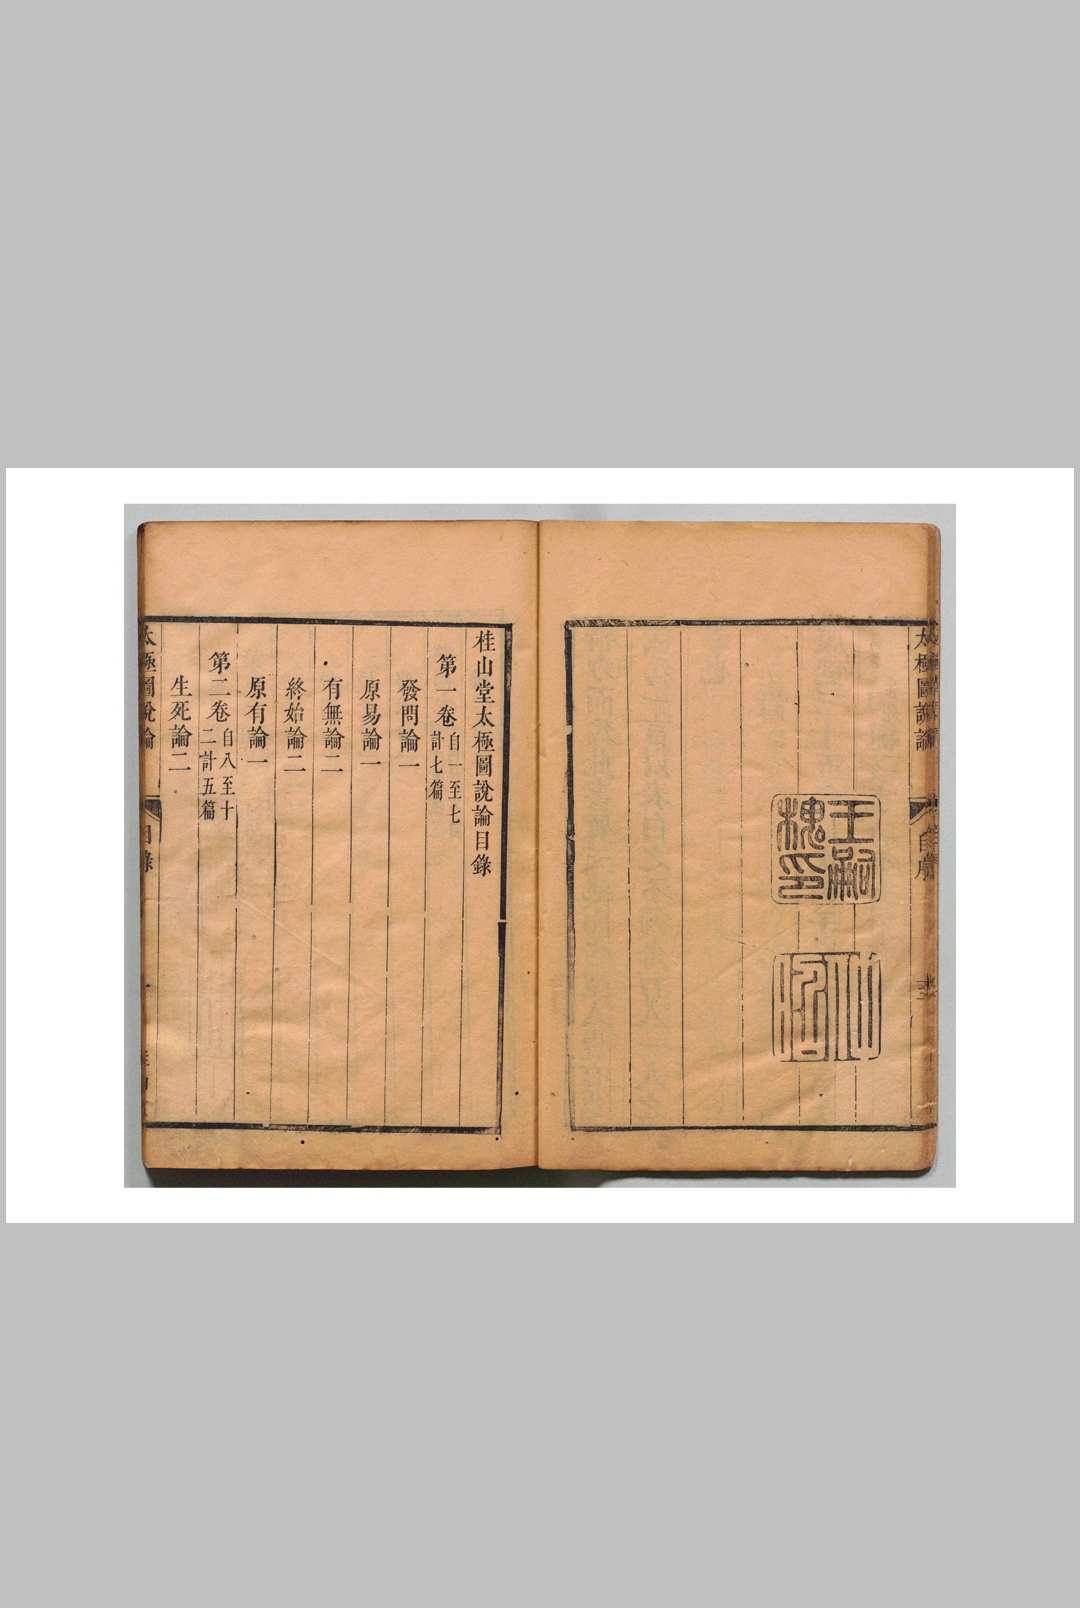 太極圖說論
自序
王嗣槐印
桂山堂太極圖說論目錄
第一卷 自一至七計七篇
發問論一
原易論一
有無論二
終始論二
原有論一
第二卷 自八至十二計五篇
生死論二
太極圖說論
目錄
一